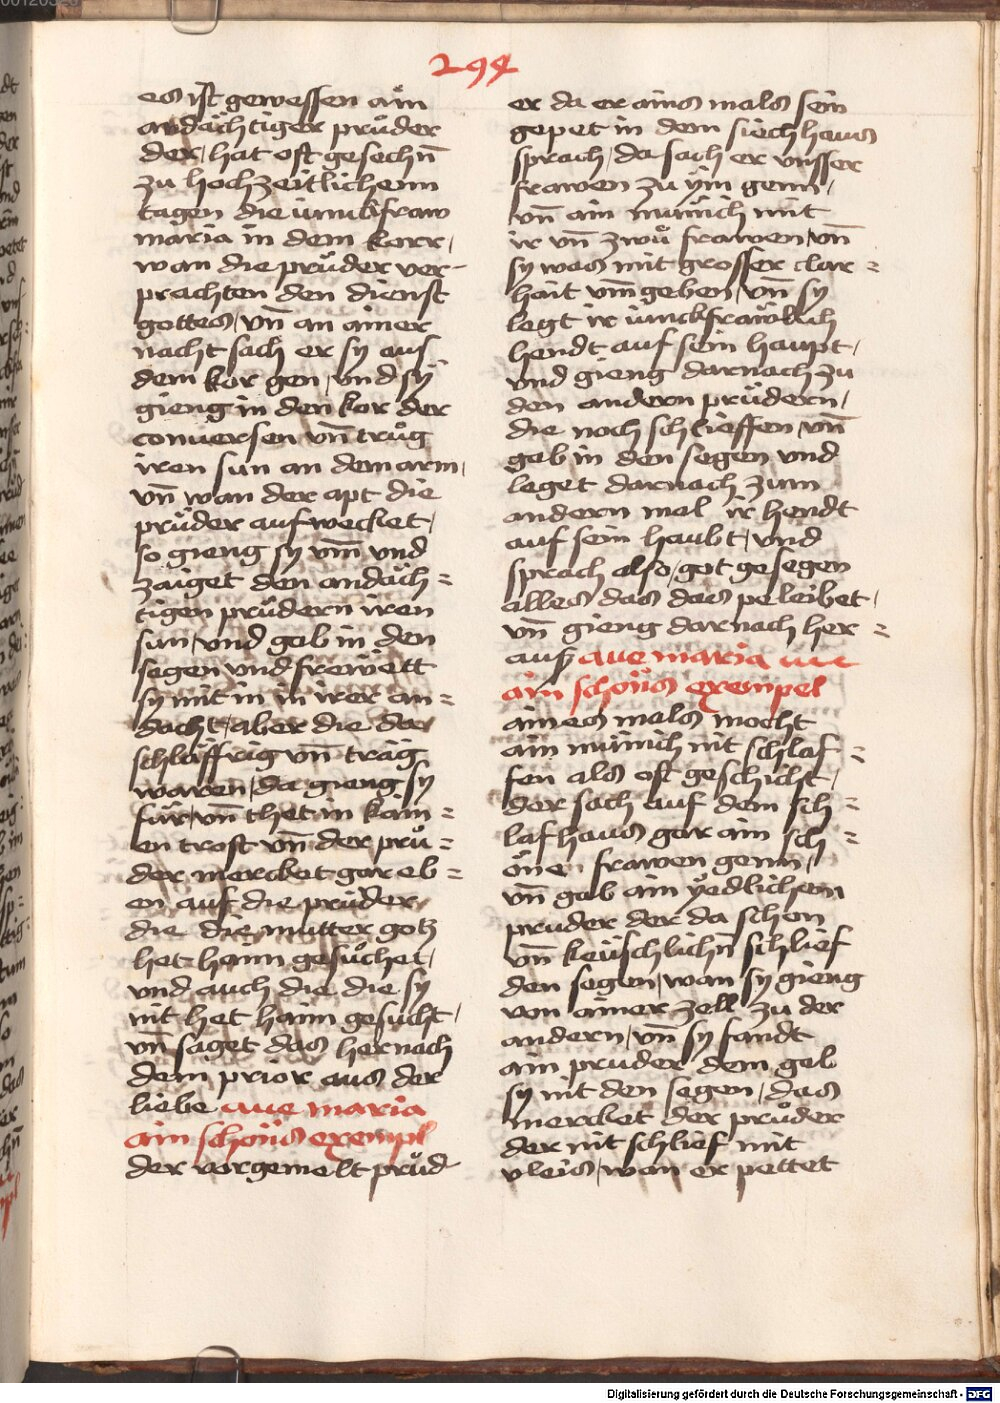 294
es ist gewessen ain
andächtiger průder
der / hat oft gesechn̄
zu hochzeitlichenn
tagen die iunckfraw
maria in dem korr /
wan die průder ver-
prachten den dienst
gottes / vn̄ an ainer
nacht sach er sy aus
dem kor gen / vnd sy
gieng in den kor der
conuersen vn̄ trůg
iren sun an dem arm /
vn̄ wan der apt die
průder aufwecket /
so gieng sy vm̄ vnd
zaiget den andäch =
tigen průdern iren
sun / vnd gab in den
segen vnd frewett
sy mit in in irer an =
dacht / aber die da
schläffrig vn̄ träg
waren / da gieng sy
für / vn̄ thet in kain =
en trost vn̄ der prů =
der mercket gar eb =
en auf die průder
die die mutter gotz
het haim gesůchet /
vnd auch die die sy
nit het haim gesucht /
vn̄ saget das hernach
dem prior aus der
liebe aue maria
ain schöns exempl
der vorgemelt průd
er da er ains mals sein
gepet in dem siechhaus
sprach / da sach er vnsser
frawen zu ÿm genn /
vn̄ ain münich mit
ir vn̄ zwů frawen / vn̄
sy was mit grosser clar =
hait vm̄ geben / vn̄ sy
legt ir iunckfräwlich
hendt auf sein haupt /
vnd gieng darnach zu
den andern prüdern /
die noch schlieffen / vn̄
gab in den segen vnd
leget darnach zum
andern mal ir hendt
auf sein haubt / vnd
sprach also / got gesegen
alles das das peleibet /
vn̄ gieng darnach her =
aus aue maria
ain schöns exempel
aines mals mocht
ain münich nit schlaf =
fen als oft geschicht /
der sach auf dem sch =
lafhaus gar ain sch =
öne frawen genn /
vn̄ gab ain yedlichem
pruder der da schon
vn̄ keüschlichn̄ schlief
den segen / wan sy gieng
von ainer zell zu der
andern / vn̄ sy fandt
ain pruder dem gab
sy nit den segen / das
mercket der průder
der nit schlief mit
vleis / wan er pettet
Digitalisierung gefördert durch die Deutsche Forschungsgemeinschaft - DFG